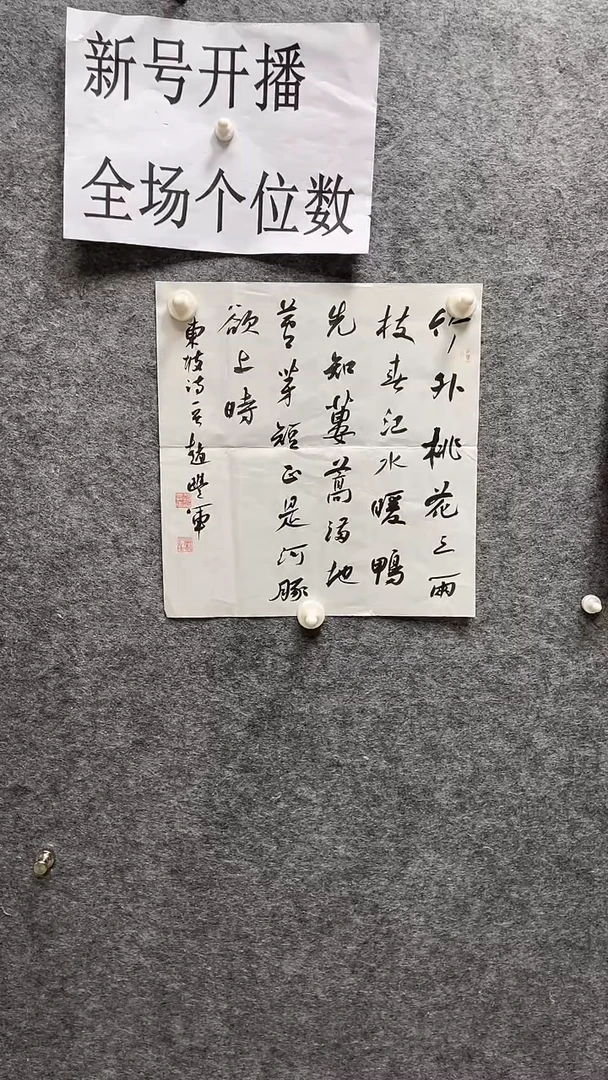 新号开播
全场个位数
竹外桃花三兩
枝春江水暖鴨
先知蔞蒿滿地
蘆芽短正是河豚
欲上時
東坡詩一首趙豐軍